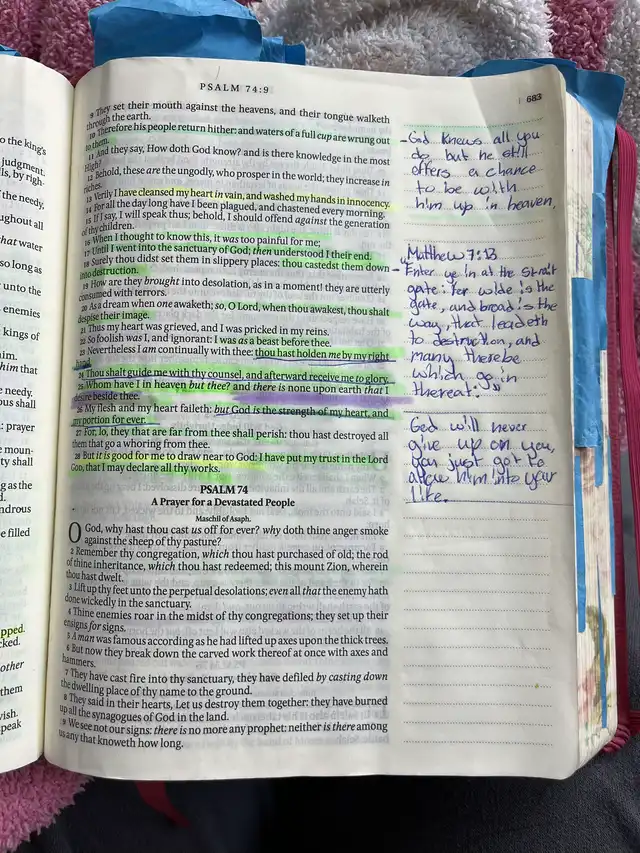 PSALM 74:9
683
9 They set their mouth against the heavens, and their tongue walketh
through the earth.
10 Therefore his people return hither: and waters of a full cup are wrung out
to them.
11 And they say, How doth God know? and is there knowledge in the most
High?
12 Behold, these are the ungodly, who prosper in the world; they increase in
riches.
13 Verily I have cleansed my heart in vain, and washed my hands in innocency.
14 For all the day long have I been plagued, and chastened every morning.
15 If I say, I will speak thus; behold, I should offend against the generation
of thy children.
16 When I thought to know this, it was too painful for me;
17 Until I went into the sanctuary of God; then understood I their end.
18 Surely thou didst set them in slippery places: thou castedst them down
into destruction.
19 How are they brought into desolation, as in a moment! they are utterly
consumed with terrors.
20 As a dream when one awaketh; so, O Lord, when thou awakest, thou shalt
despise their image.
21 Thus my heart was grieved, and I was pricked in my reins.
22 So foolish was I, and ignorant: I was as a beast before thee.
23 Nevertheless I am continually with thee: thou hast holden me by my right
hand.
24 Thou shalt guide me with thy counsel, and afterward receive me to glory.
25 Whom have I in heaven but thee? and there is none upon earth that I
desire beside thee.
26 My flesh and my heart faileth: but God is the strength of my heart, and
my portion for ever.
27 For, lo, they that are far from thee shall perish: thou hast destroyed all
them that go a whoring from thee.
28 But it is good for me to draw near to God: I have put my trust in the Lord
GOD, that I may declare all thy works.
PSALM 74
A Prayer for a Devastated People
Maschil of Asaph.
O God, why hast thou cast us off for ever? why doth thine anger smoke
against the sheep of thy pasture?
2 Remember thy congregation, which thou hast purchased of old; the rod
of thine inheritance, which thou hast redeemed; this mount Zion, wherein
thou hast dwelt.
3 Lift up thy feet unto the perpetual desolations; even all that the enemy hath
done wickedly in the sanctuary.
4 Thine enemies roar in the midst of thy congregations; they set up their
ensigns for signs.
5 A man was famous according as he had lifted up axes upon the thick trees.
6 But now they break down the carved work thereof at once with axes and
hammers.
7 They have cast fire into thy sanctuary, they have defiled by casting down
the dwelling place of thy name to the ground.
8 They said in their hearts, Let us destroy them together: they have burned
up all the synagogues of God in the land.
9 We see not our signs: there is no more any prophet: neither is there among
us any that knoweth how long.
- God knows all you
do, but he still
offers a chance
to be with
him up in heaven.
Matthew 7:13
- "Enter ye in at the strait
gate: for wide is the
gate, and broad is the
way, that leadeth
to destruction, and
many there be
which go in
thereat:"
God will never
give up on you,
you just got to
allow him into your
life.
to the king's
judgment.
the needy,
ughout all
that water
so long as
unto the
enemies
kings of
him that
needy.
prayer
ty shall
as the
ndrous
be filled
pped.
cked.
other
them
vish.
peak